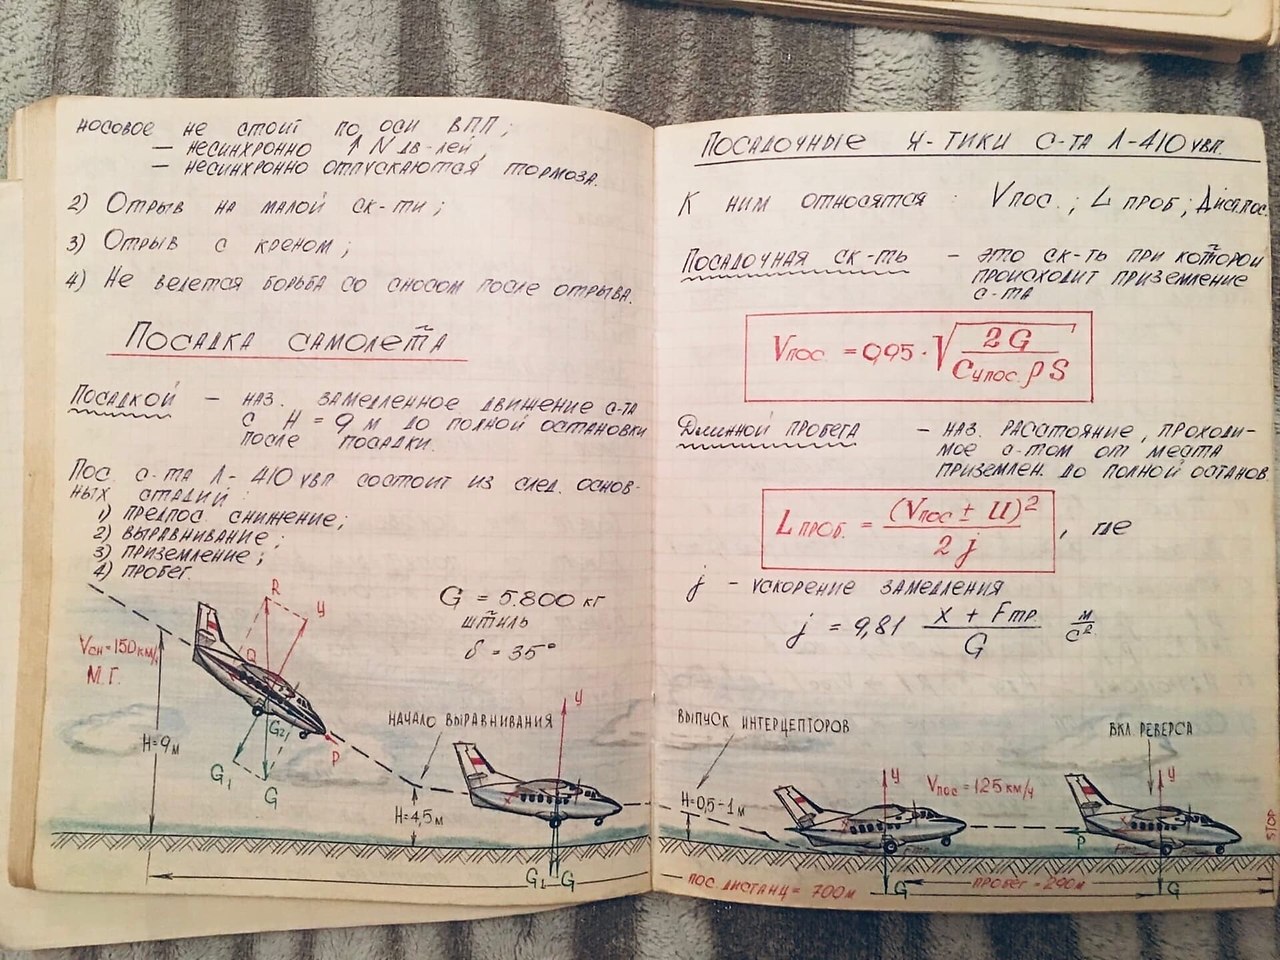 носовое не стоит по оси ВПП;
— несинхронно ↑ N дв-лей,
— несинхронно отпускаются тормоза.
2) Отрыв на малой ск-ти;
3) Отрыв с креном;
4) Не ведется борьба со сносом после отрыва.
Посадка самолета
Посадкой — наз. замедленное движение с-та
с H = 9 м до полной остановки
после посадки.
Пос. с-та Л-410 увп состоит из след. основ-
ных стадий:
1) предпос. снижение;
2) выравнивание;
3) приземление;
4) пробег.
G = 5.800 кг
штиль
δ = 35°
Vсн = 150 км/ч
М.Г.
R
y
Q
G2
P
G1
G
H = 9 м
начало выравнивания
H = 4,5 м
y
x
G1 G
Посадочные ч-тики с-та Л-410 увп.
К ним относятся: Vпос.; L проб; Дист.пос.
Посадочная ск-ть — это ск-ть при которой
происходит приземление
с-та
Vпос. = 0,95 · √(2G / Cyпос. ρ S)
Длинной пробега — наз. расстояние, проходи-
мое с-том от места
приземлен. до полной останов
L проб. = (Vпос ± U)² / 2j , где
j — ускорение замедления
j = 9,81 (X + Fтр.) / G м/с²
выпуск интерцепторов
вкл реверса
H = 0,5-1 м
y
x
Vпос = 125 км/ч
Fтр
G
y
x
P
Fтр
G
STOP
пос. дистанц = 700 м
пробег = 290 м